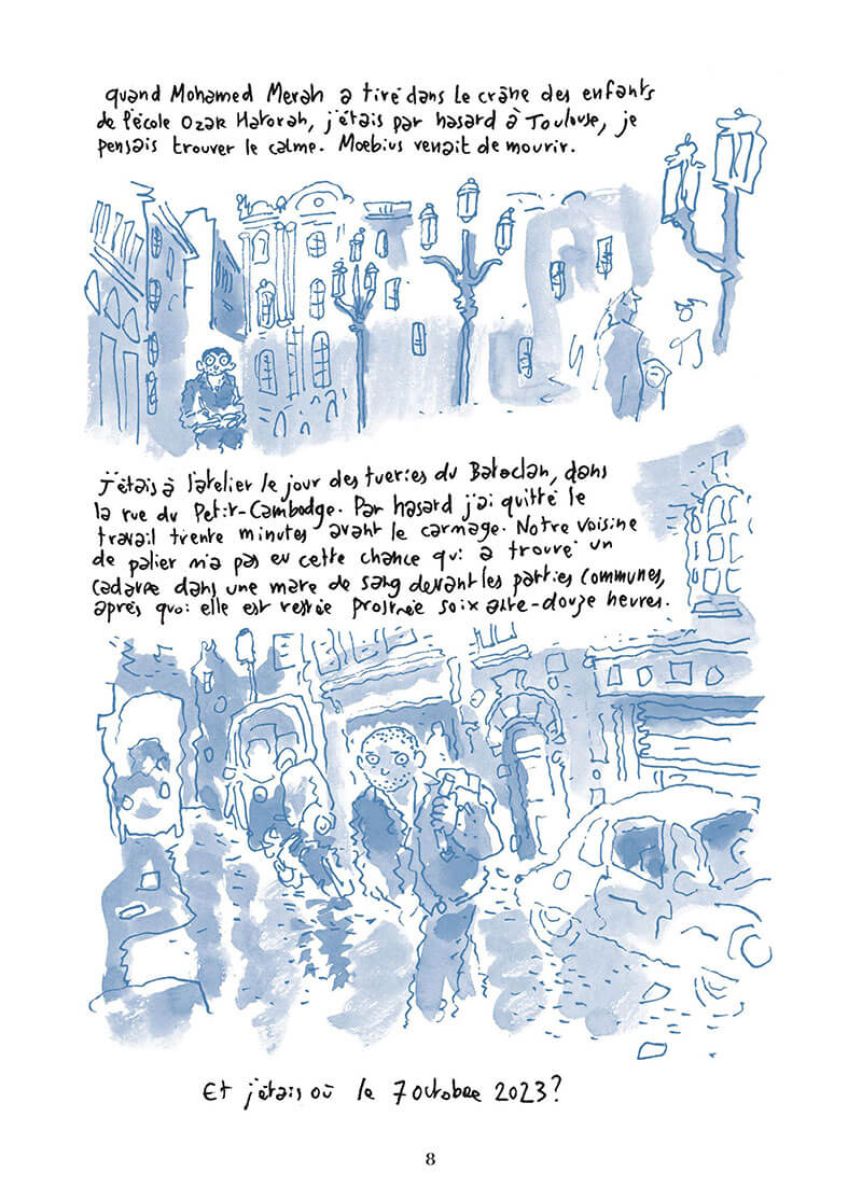 quand Mohamed Merah a tiré dans le crâne des enfants
de l'école Ozar Hatorah, j'étais par hasard à Toulouse, je
pensais trouver le calme. Moebius venait de mourir.
j'étais à l'atelier le jour des tueries du Bataclan, dans
la rue du Petit-Cambodge. Par hasard j'ai quitté le
travail trente minutes avant le carnage. Notre voisine
de palier n'a pas eu cette chance qui a trouvé un
cadavre dans une mare de sang devant les parties communes,
après quoi elle est restée prostrée soixante-douze heures.
Et j'étais où le 7 octobre 2023?
8